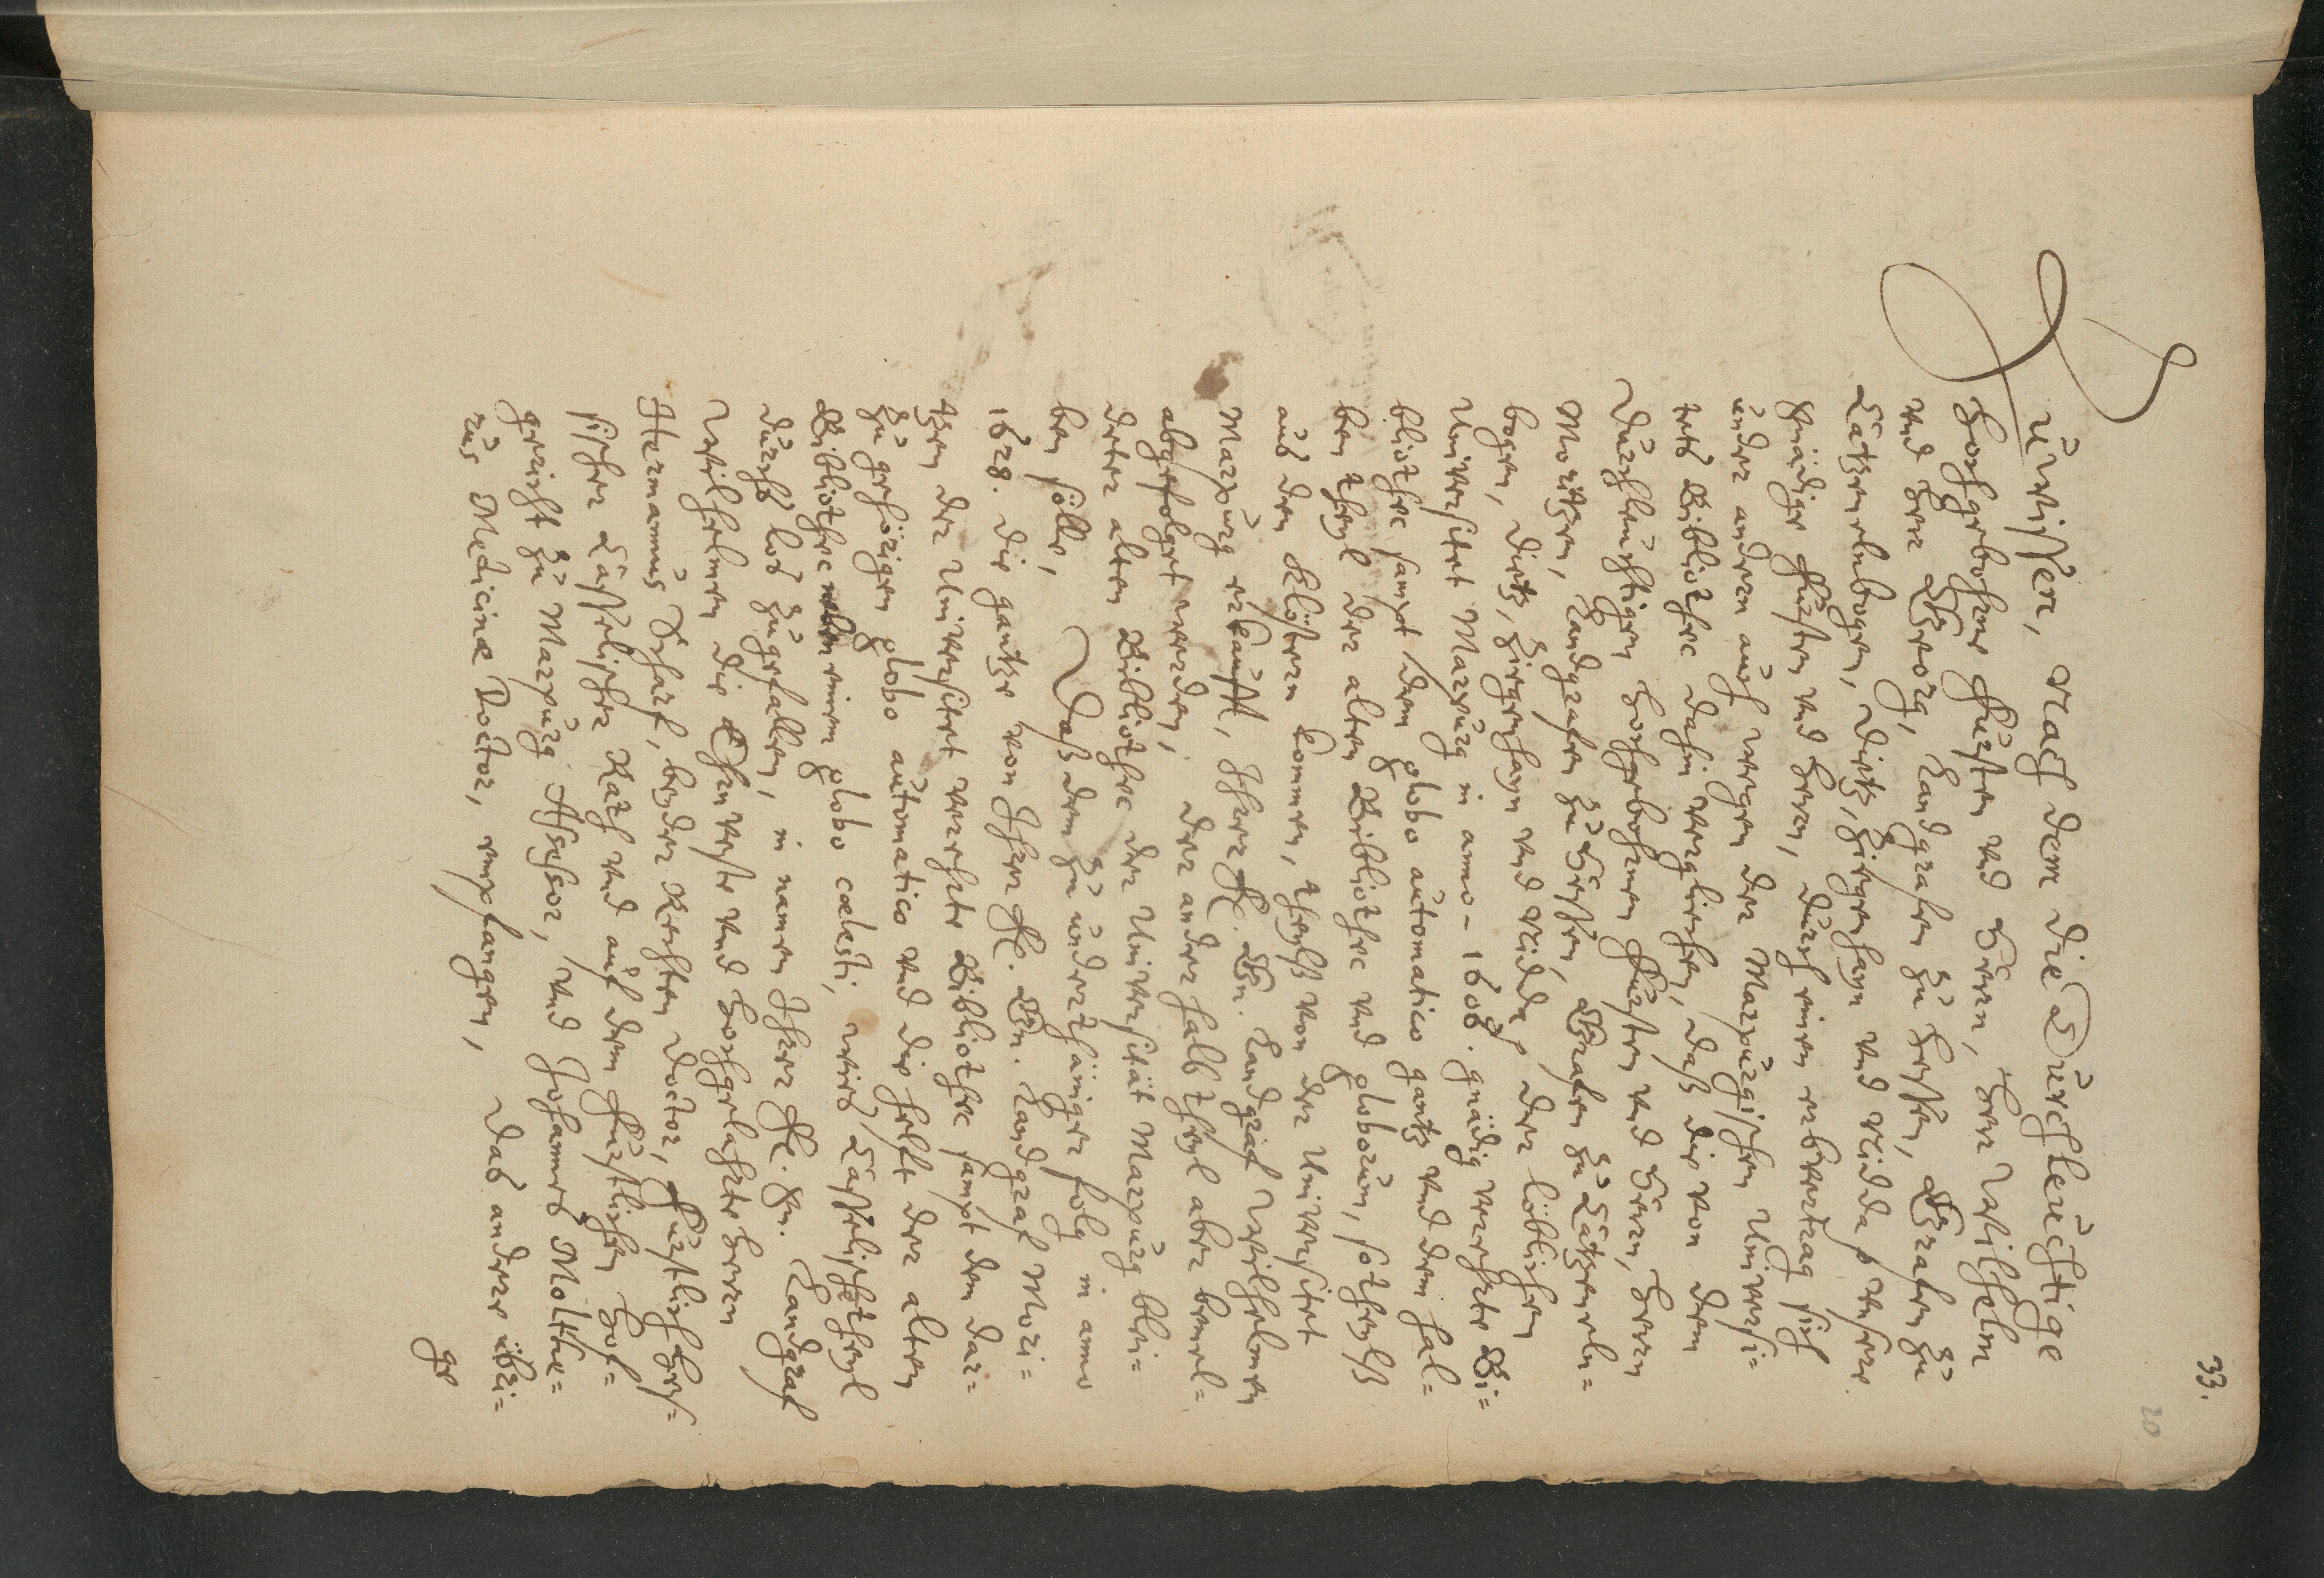 33.
20
Zuwissen, Nach dem die Durchleuchtige
Hochgebohrne Fürsten und Herrn, Herr Wilhelm
und Herr Georg, Landgrafen zu Hessen, Grafen zu
Catzenelnbogen, Dietz, Ziegenhayn und Nidda, unsere
Gnädige Fürsten und Herrn, durch einen erbvertrag sich
under andern auch wegen der Marpurgischen Universi=
tets Bibliothec dahin verglichen, daß die von dem
Durchleuchtigen Hochgebohrnen Fürsten und Herrn, Herrn
Moritzen, Landgrafen zu Hessen, Grafen zu Catzeneln=
bogen, Dietz, Ziegenhayn und Nidda, der löblichen
Universitet Marpurg in anno 1606. gnädig verehrte Bi=
bliothec sampt dem globo automatico gantz und dem hal=
ben theyl der alten Bibliothec und globorum, so theylß
auß den Clöstern kommen, theylß von der Universitet
Marpurg erkaufft, Ihrer F. Gn. Landgraf Wilhelmen
abgefolget werden, der ander halb theyl aber bemel=
deter alten Bibliothec der Universität Marpurg blei=
ben solle, Daß dem zu underthäniger folg in anno
1628. die gantze von Ihrer F. Gn. Landgraf Mori=
tzen der Universitet verehrte Bibliothec sampt dem dar=
zu gehörigen globo automatico und die helft der alten
Bibliothec neben einem globo cœlesti, welches Casselische theyl
durchs los zugefallen, in namen Ihrer F. Gn. Landgraf
Wilhelmen die Ehrnveste und Hochgelahrte Herrn
Hermannus Scharf, beyder Rechten Doctor, Fürstlich Hes=
sischer Casselischer Rath und auf dem Fürstlichen Hof=
gericht zu Marpurg Assessor, und Johannes Molthe=
rus Medicinæ Doctor, empfangen, Das andere übri=
ge